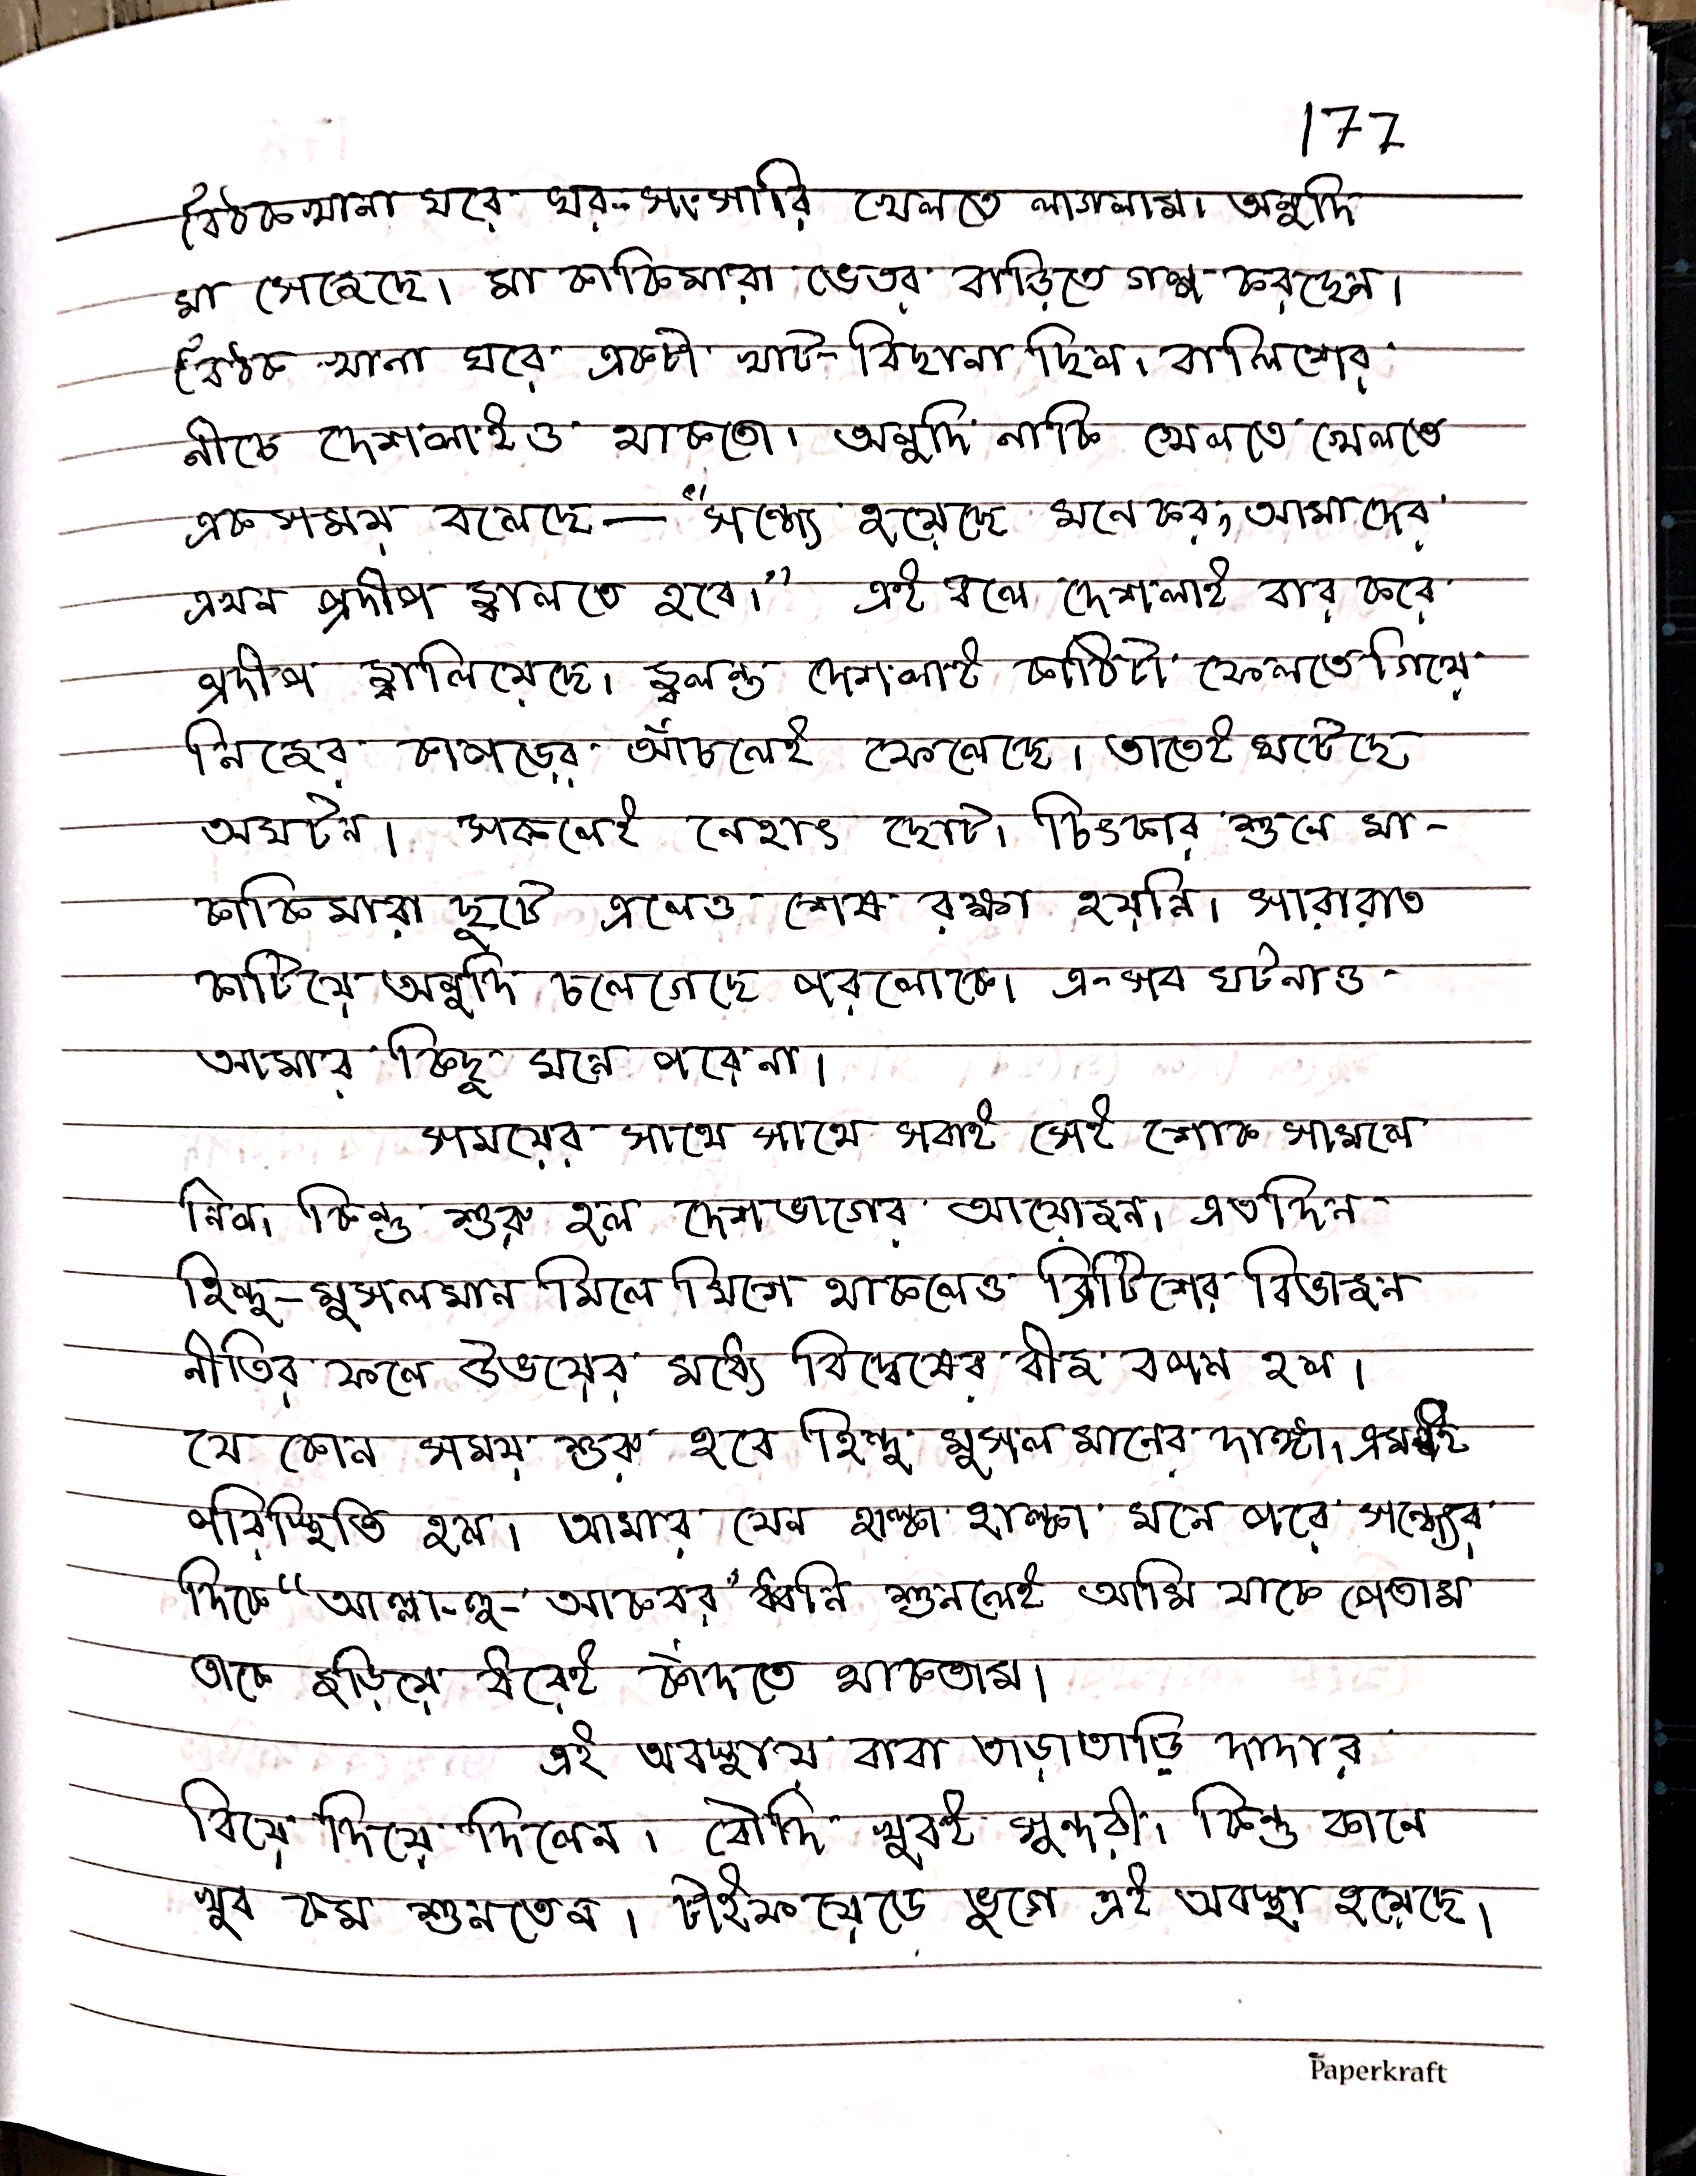 177
বৈঠকখানা ঘরে ঘর-সংসারি খেলতে লাগলাম। অনুদি
মা সেজেছে। মা কাকিমারা ভেতর বাড়িতে গল্প করছেন।
বৈঠক খানা ঘরে একটা খাট-বিছানা ছিল। বালিশের
নীচে দেশলাইও থাকতো। অনুদি নাকি খেলতে খেলতে
একসময় বলেছে — "সন্ধ্যে হয়েছে মনে কর, আমাদের
এখন প্রদীপ জ্বালতে হবে।" এই বলে দেশলাই বার করে
প্রদীপ জ্বালিয়েছে। জ্বলন্ত দেশলাই কাঠিটা ফেলতে গিয়ে
নিজের কাপড়ের আঁচলেই ফেলেছে। তাতেই ঘটেছে
অঘটন। সকলেই নেহাৎ ছোট। চিৎকার শুনে মা-
কাকিমারা ছুটে এলেও শেষ রক্ষা হয়নি। সারারাত
কাটিয়ে অনুদি চলে গেছে পরলোকে। এ-সব ঘটনাও
আমার কিছু মনে পরে না।
সময়ের সাথে সাথে সবাই সেই শোক সামলে
নিল। কিন্তু শুরু হল দেশভাগের আয়োজন। এতদিন
হিন্দু-মুসলমান মিলে মিশে থাকলেও ব্রিটিশের বিভাজন
নীতির ফলে উভয়ের মধ্যে বিদ্বেষের বীজ বপন হল।
যে কোন সময় শুরু হবে হিন্দু মুসলমানের দাঙ্গা। এমনই
পরিস্থিতি হল। আমার যেন হাল্কা হাল্কা মনে পরে সন্ধ্যের
দিকে "আল্লা-হু-আকবর" ধ্বনি শুনলেই আমি যাকে পেতাম
তাকে জড়িয়ে ধরেই কাঁদতে থাকতাম।
এই অবস্থায় বাবা তাড়াতাড়ি দাদার
বিয়ে দিয়ে দিলেন। বৌদি খুবই সুন্দরী। কিন্তু কানে
খুব কম শুনতেন। টাইফয়েডে ভুগে এই অবস্থা হয়েছে।
Paperkraft